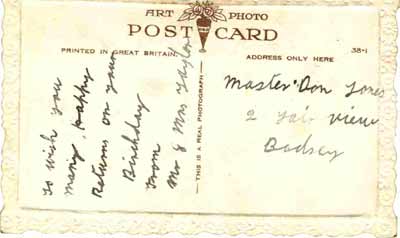 ART PHOTO
POST CARD
PRINTED IN GREAT BRITAIN.
ADDRESS ONLY HERE
38-1
THIS IS A REAL PHOTOGRAPH
To wish you
many Happy
Returns on your
Birthday
From
Mr & Mrs Taylor
Master Don Jones
2 Fair View
Badsey